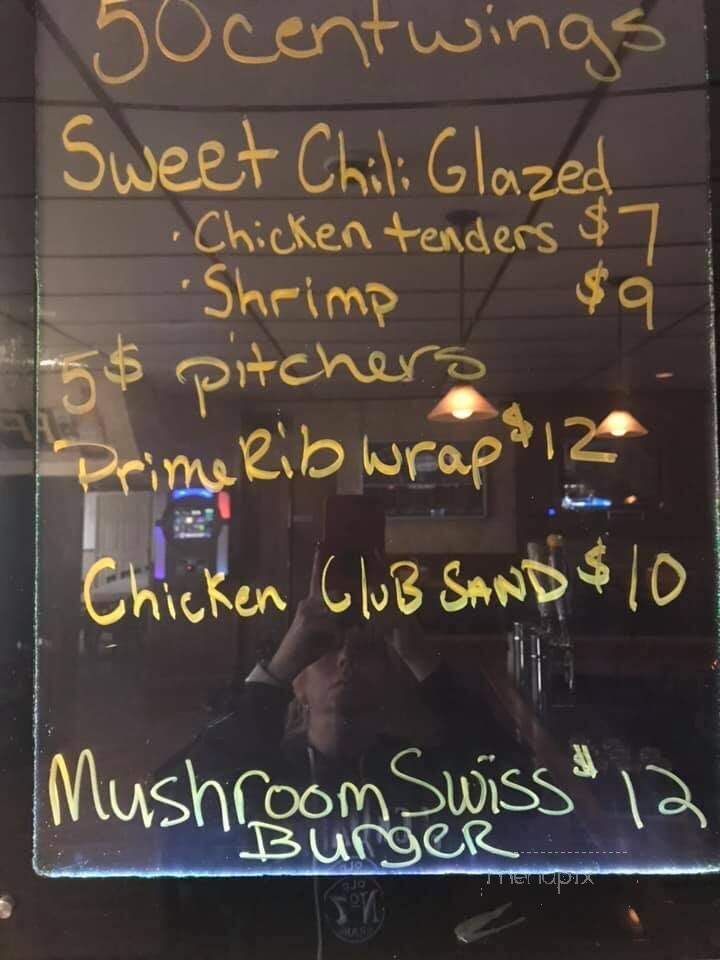 50 cent wings
Sweet Chili Glazed
· Chicken tenders $7
· Shrimp $9
5$ pitchers
Prime Rib wrap $12
Chicken CluB SAND $10
Mushroom Swiss $12
BurgeR
menupix